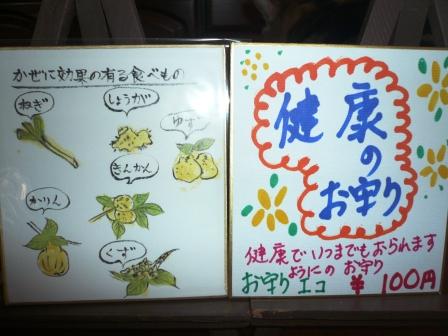 かぜに効果の有る食べもの
ねぎ
しょうが
ゆず
きんかん
かりん
くず
健康
の
お守り
健康でいつまでもおられます
ようにの お守り
お守り エコ ¥100円